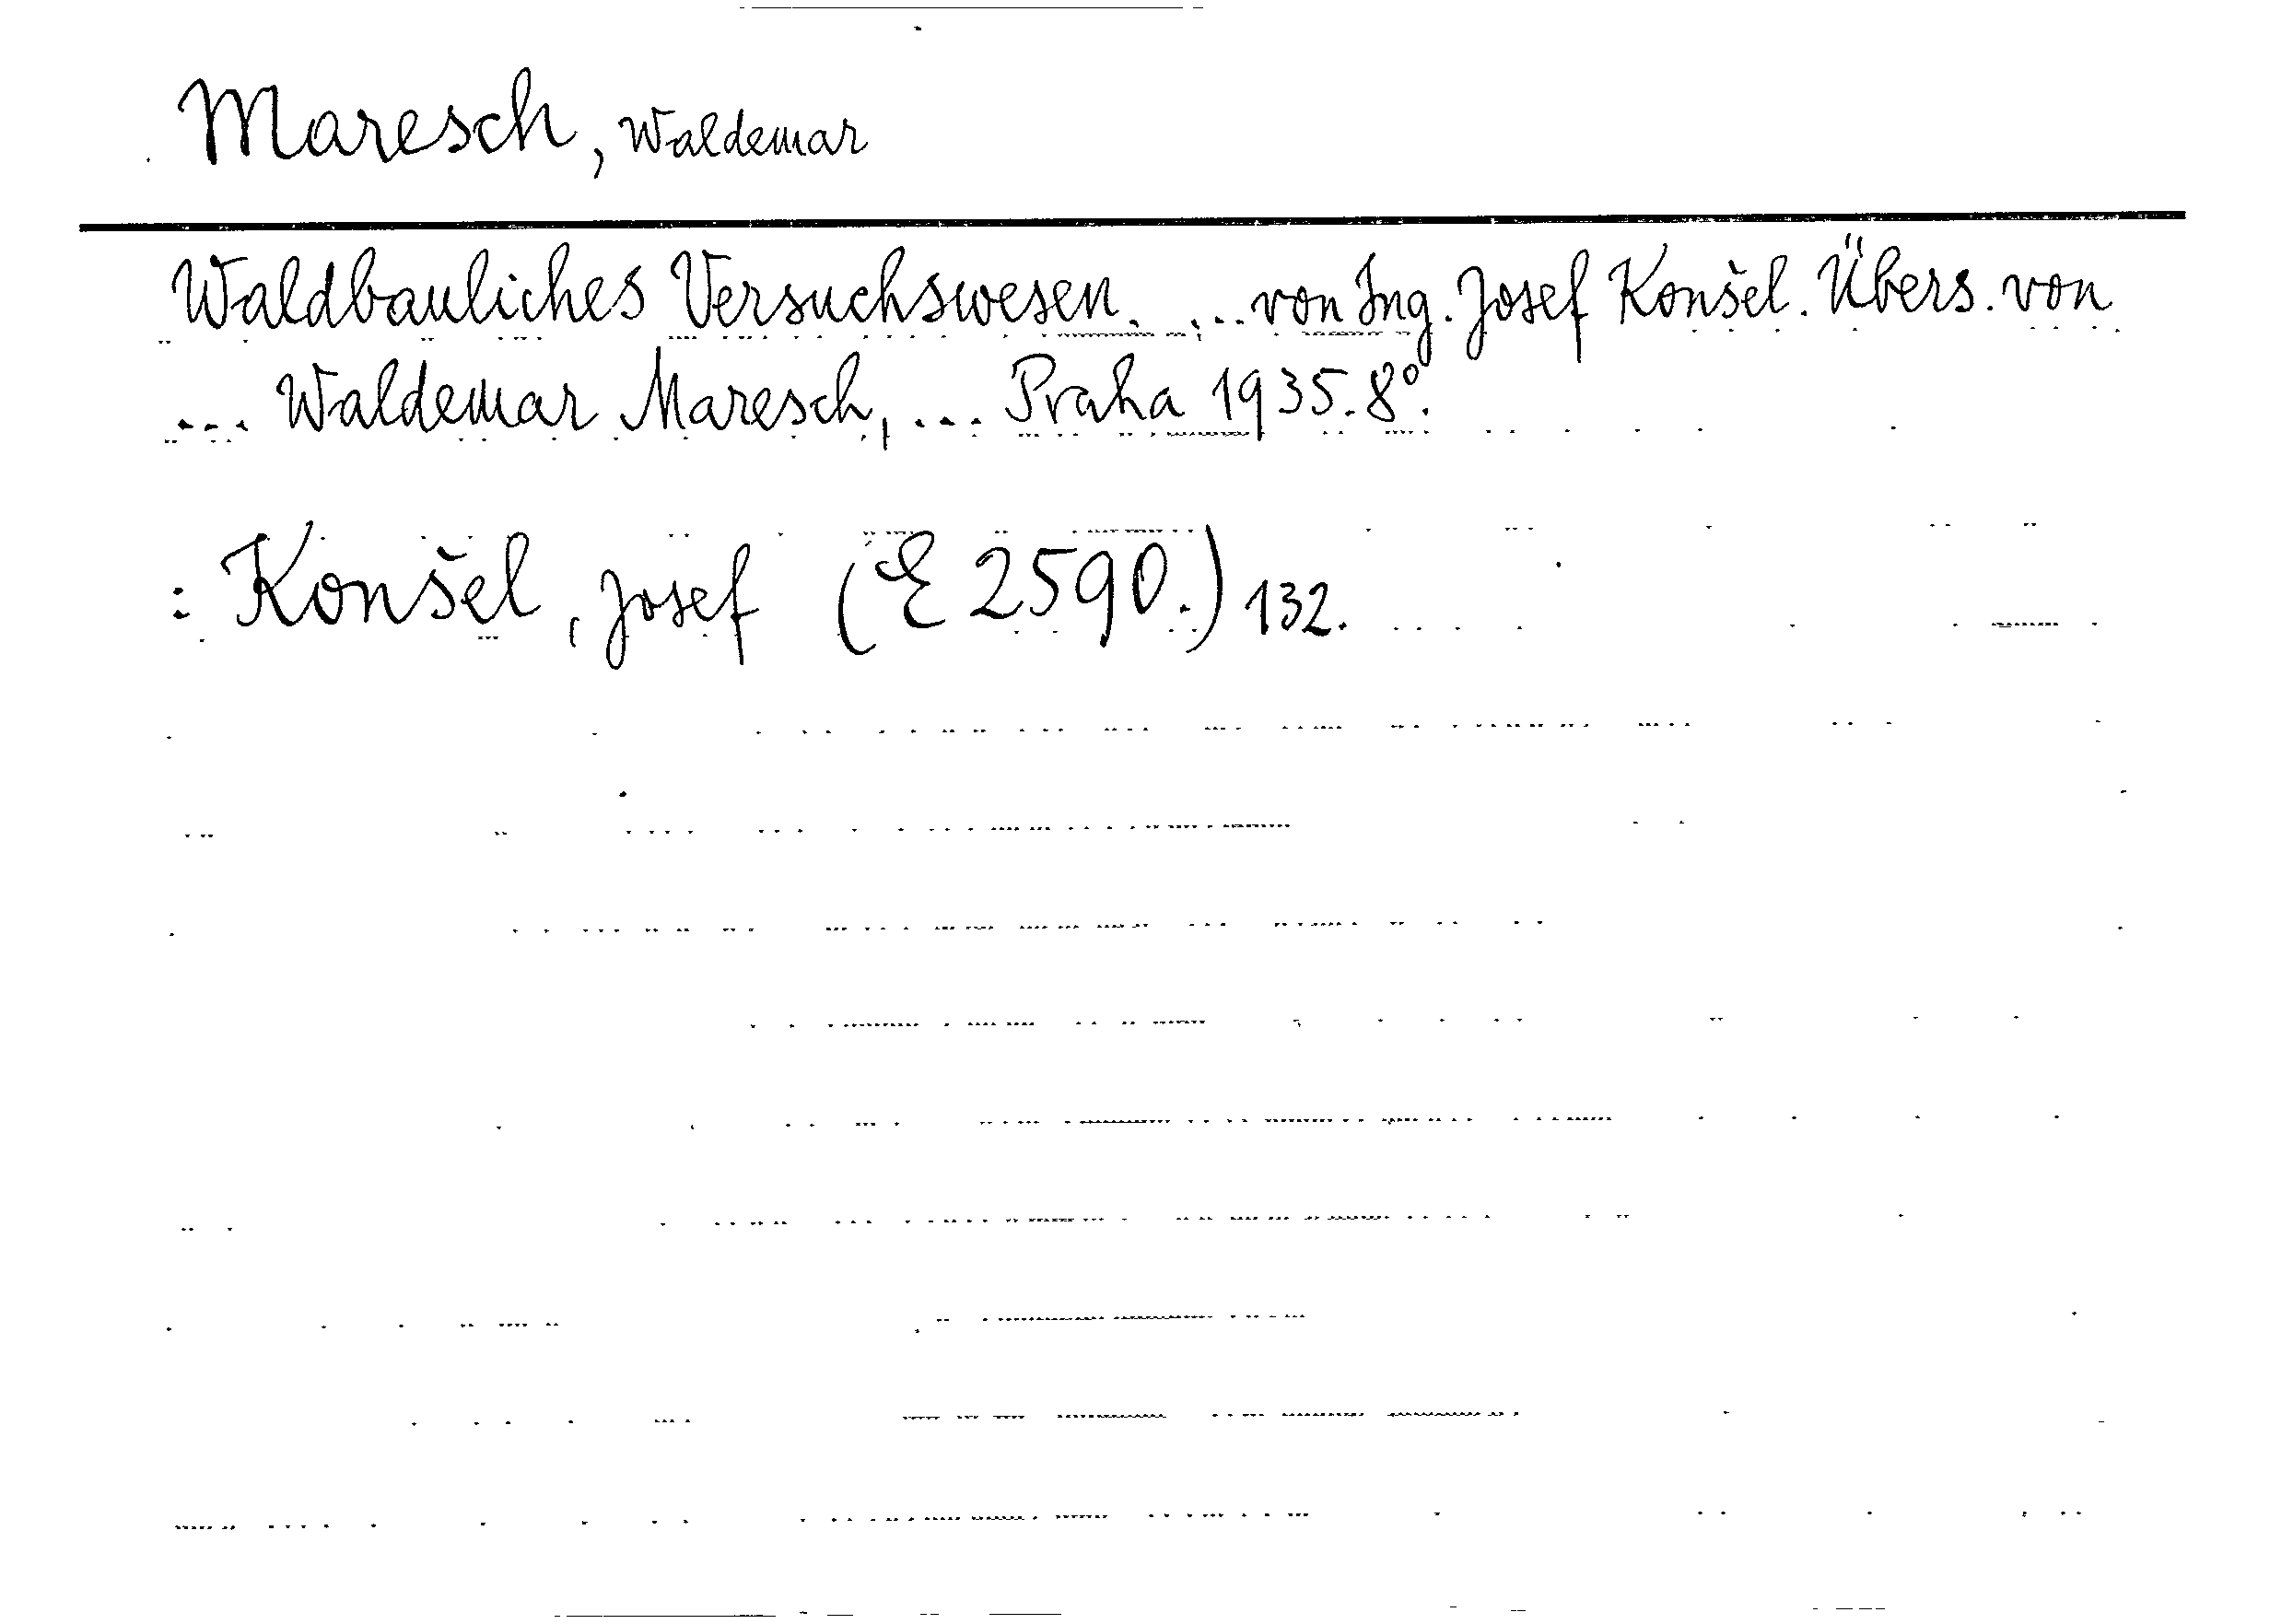 Maresch, Waldemar
Waldbauliches Versuchswesen. ... von Ing. Josef Konšel. Übers. von
... Waldemar Maresch, ... Praha 1935. 8°.
: Konšel, Josef (E 2590.) 132.